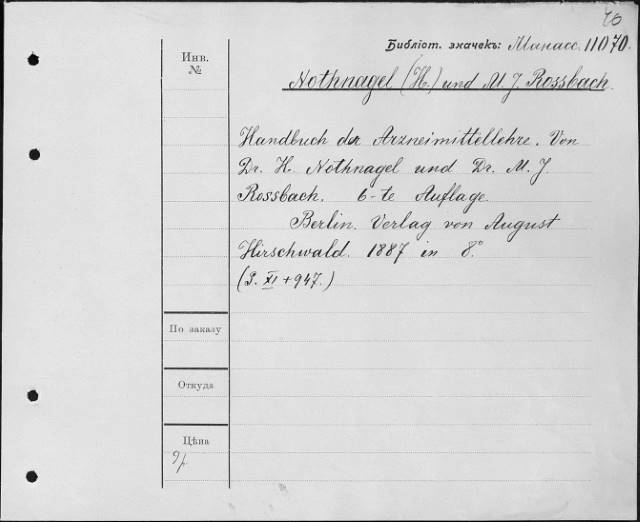 Библіот. значекъ: Манасс. 11070.
Инв.
№
Nothnagel (H.) und M. J. Rossbach.
Handbuch der Arzneimittellehre. Von
Dr. H. Nothnagel und Dr. M. J.
Rossbach. 6-te Auflage.
Berlin. Verlag von August
Hirschwald. 1887 in 8°
(S. XI + 947.)
По заказу
Откуда
Цѣна